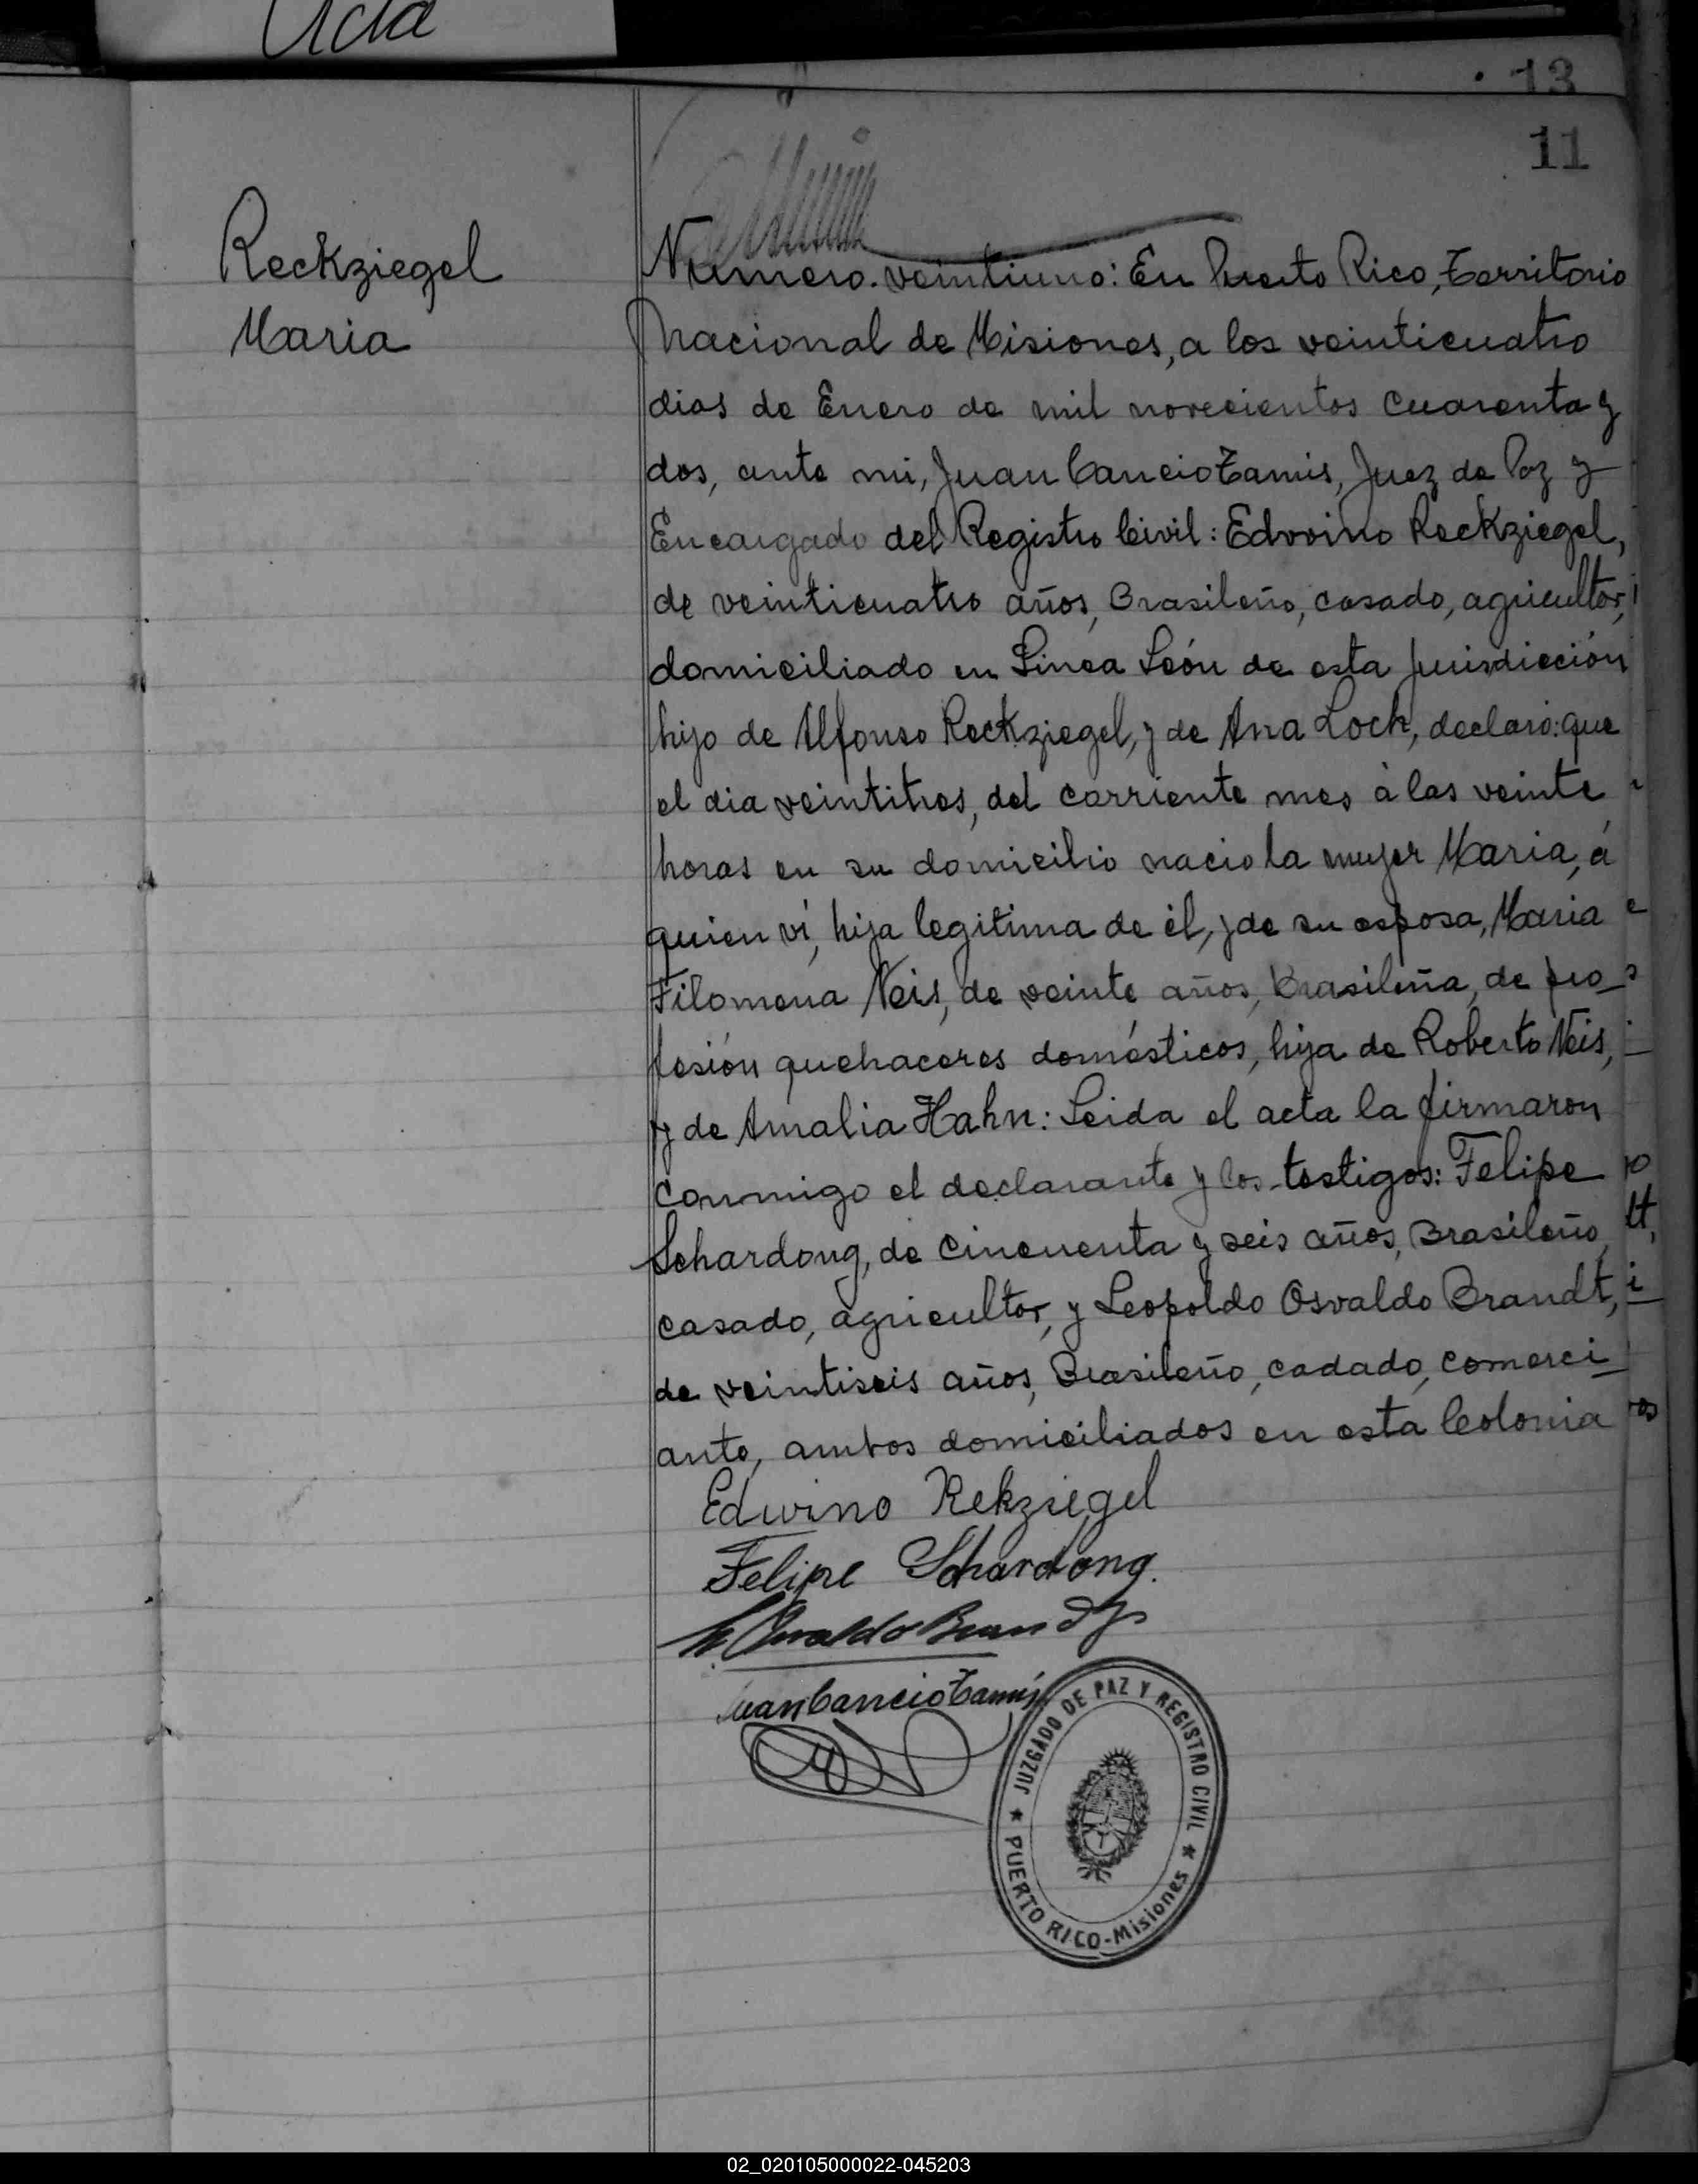 Acta
13
11
Reckziegel
Maria
Numero. veintiuno: En Puerto Rico, Territorio
Nacional de Misiones, a los veinticuatro
dias de Enero de mil novecientos cuarenta y
dos, ante mi, Juan Cancio Tamis, Juez de Paz y
Encargado del Registro Civil: Edvvino Reckziegel,
de veinticuatro años, Brasileño, casado, agricultor,
domiciliado en Linea León de esta jurisdicción
hijo de Alfonso Reckziegel, y de Ana Loch, declaró: que
el dia veintitres, del corriente mes à las veinte
horas en su domicilio nacio la mujer Maria, á
quien vi, hija legitima de él, y de su esposa, Maria
Filomena Neis, de veinte años, Brasileña, de pro_
fesión quehaceres domésticos, hija de Roberto Neis,
y de Amalia Hahn: Leida el acta la firmaron
conmigo el declarante y los testigos: Felipe
Schardong, de cincuenta y seis años, Brasileño,
casado, agricultor, y Leopoldo Osvaldo Brandt,
de veintiseis años, Brasileño, cadado, comerci_
ante, ambos domiciliados en esta Colonia
Edwino Rekziegel
Felipe Schardong.
L Osvaldo Brandt
Juan Cancio Tamis
JUZGADO DE PAZ Y REGISTRO CIVIL
★ PUERTO RICO-Misiones ★
02_020105000022-045203